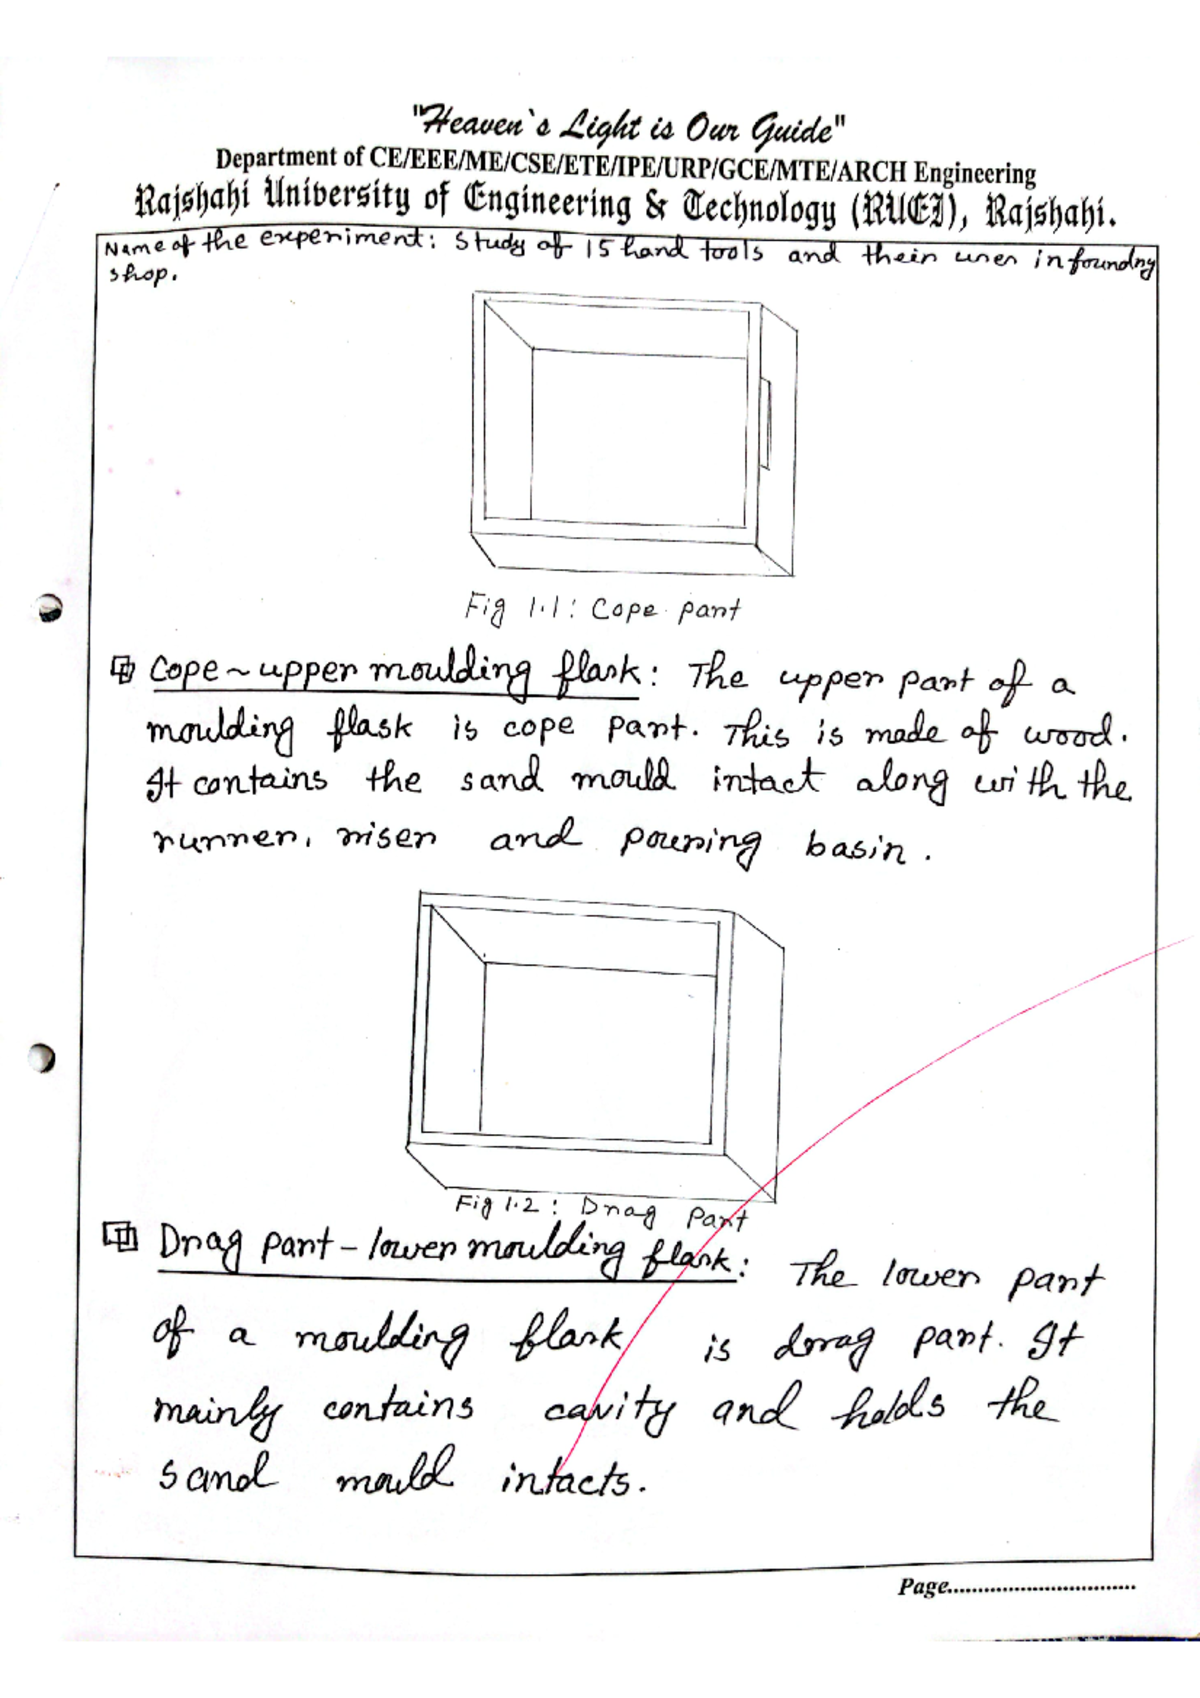 "Heaven`s Light is Our Guide"
Department of CE/EEE/ME/CSE/ETE/IPE/URP/GCE/MTE/ARCH Engineering
Rajshahi University of Engineering & Technology (RUET), Rajshahi.
Name of the experiment: Study of 15 hand tools and their uses in foundry
shop.
Fig 1.1: Cope part
Cope ~ upper moulding flask: The upper part of a
moulding flask is cope part. This is made of wood.
It contains the sand mould intact along with the
runner, riser and pouring basin.
Fig 1.2: Drag Part
Drag part - lower moulding flask: The lower part
of a moulding flask is drag part. It
mainly contains cavity and holds the
sand mould intacts.
Page................................